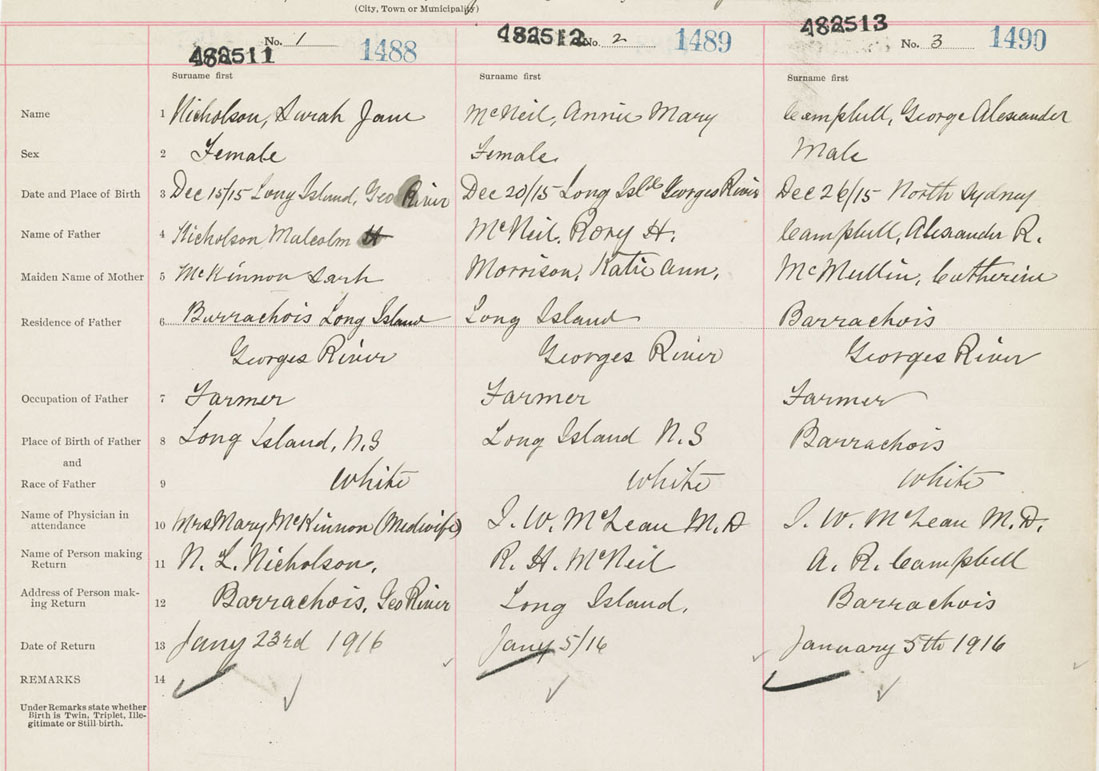 (City, Town or Municipality)
482511 No. 1 1488 482512 No. 2 1489 482513 No. 3 1490
Surname first Surname first Surname first
Name 1 Nicholson, Sarah Jane McNeil, Annie Mary Campbell, George Alexander
Sex 2 Female Female Male
Date and Place of Birth 3 Dec 15/15 Long Island, Geo River Dec 20/15 Long Isld Georges River Dec 26/15 North Sydney
Name of Father 4 Nicholson Malcolm H McNeil, Rory H. Campbell, Alexander R.
Maiden Name of Mother 5 McKinnon Sarh Morrison, Katie Ann, McMullin, Catherine
Residence of Father 6 Barrachois Long Island Long Island Barrachois
Georges River Georges River Georges River
Occupation of Father 7 Farmer Farmer Farmer
Place of Birth of Father 8 Long Island, N.S Long Island N.S Barrachois
and
Race of Father 9 White White White
Name of Physician in
attendance 10 Mrs Mary McKinnon (Medwife) J. W. McLean M.D J. W. McLean M.D.
Name of Person making
Return 11 N. L. Nicholson, R. H. McNeil A. R. Campbell
Address of Person mak-
ing Return 12 Barrachois, Geo River Long Island, Barrachois
Date of Return 13 Jany 23rd 1916 Jany 5/16 January 5th 1916
REMARKS 14
Under Remarks state whether
Birth is Twin, Triplet, Ille-
gitimate or Still-birth.